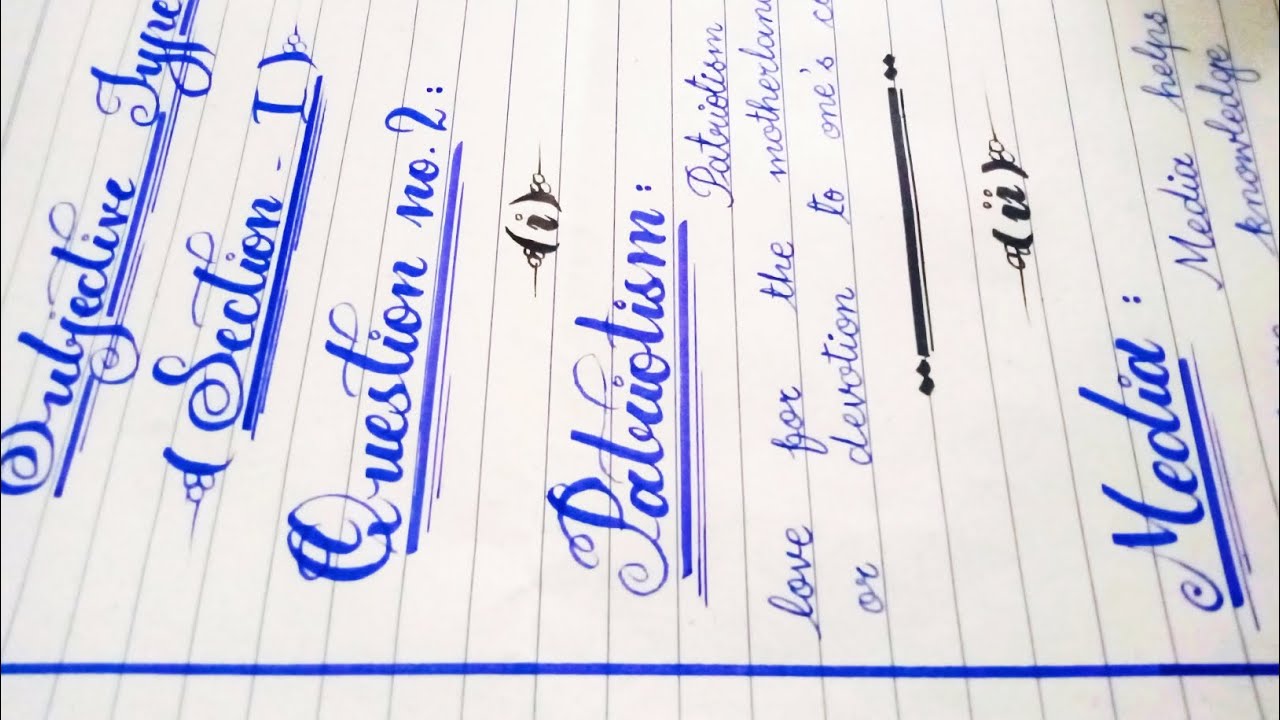 Subjective Type
(Section - I)
Question no. 2:
(i)
Patriotism:
Patriotism
love for the motherlan
or devotion to one's co
(ii)
Media:
Media helps
knowledge